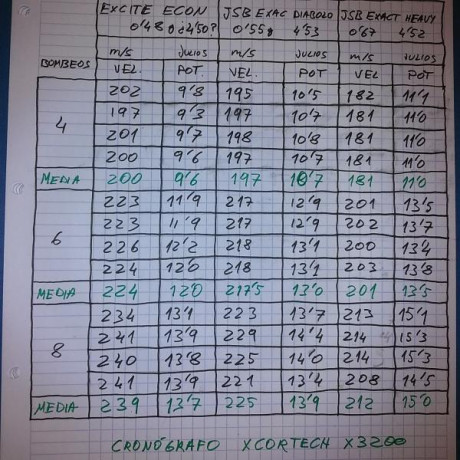 EXCITE ECON JSB EXAC DIABOLO JSB EXACT HEAVY
0'48 ¿4'50? 0'55g 4'53 0'67 4'52
BOMBEOS m/s JULIOS m/s JULIOS m/s JULIOS
VEL. POT. VEL. POT VEL POT
4 202 9'8 195 10'5 182 11'1
197 9'3 197 10'7 181 11'0
201 9'7 198 10'8 181 11'0
200 9'6 197 10'7 181 11'0
MEDIA 200 9'6 197 10'7 181 11'0
6 223 11'9 217 12'9 201 13'5
223 11'9 217 12'9 202 13'7
226 12'2 218 13'1 200 13'4
224 12'0 218 13'1 203 13'8
MEDIA 224 120 217'5 13'0 201 13'5
8 234 13'1 223 13'7 213 15'1
241 13'9 229 14'4 214 15'3
240 13'8 225 14'0 214 15'3
241 13'9 221 13'4 208 14'5
MEDIA 239 13'7 225 13'9 212 15'0
CRONÓGRAFO XCORTECH X3200